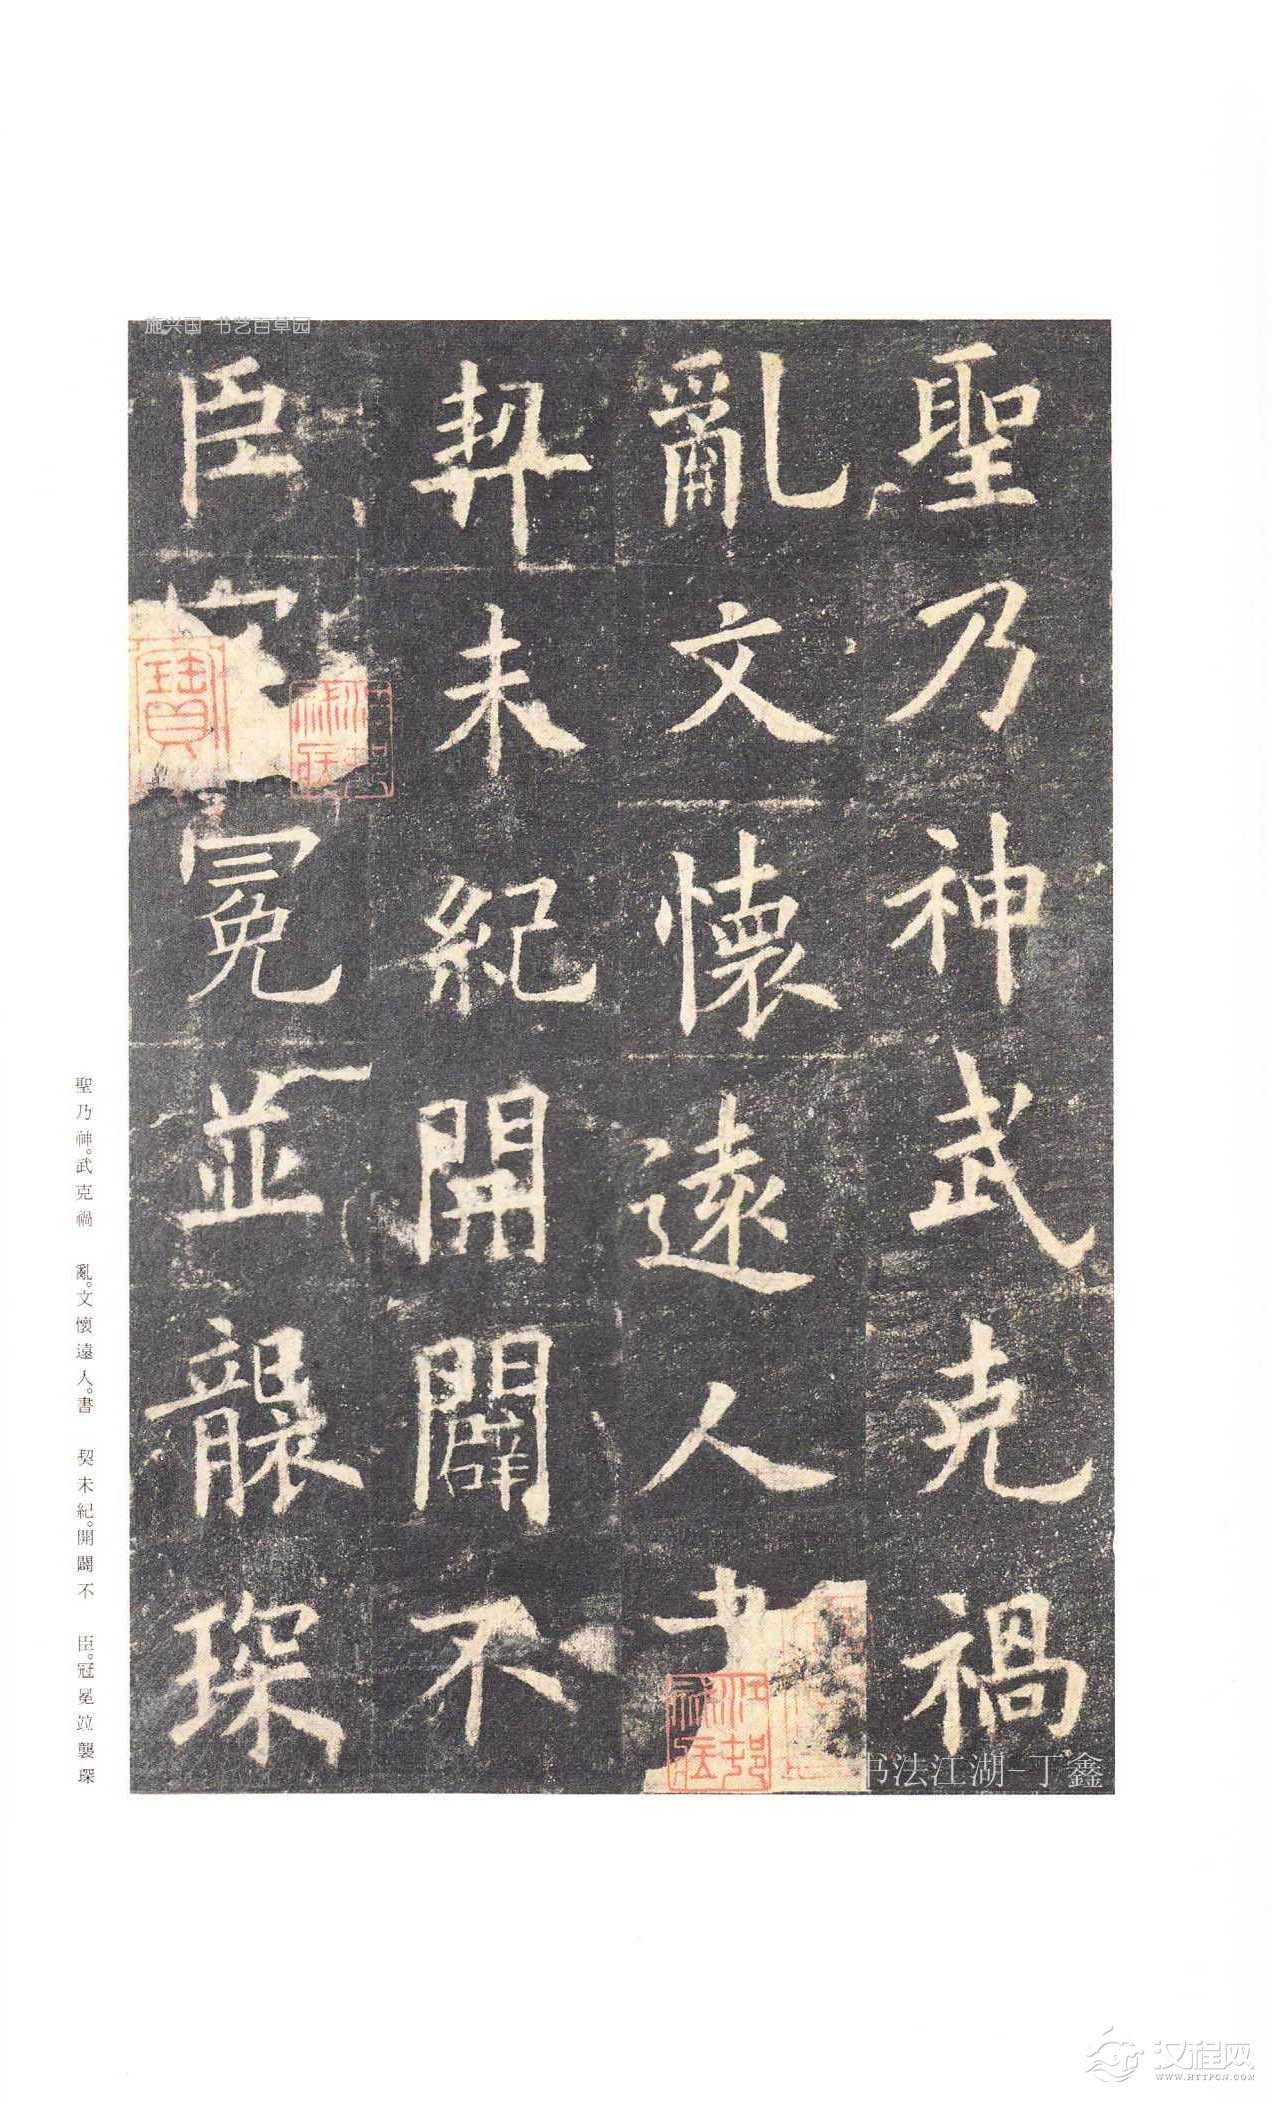 聖乃神武克禍
亂文懷遠人書
契未紀開闢不
臣冠冕並襲琛
聖乃神。武克禍 亂。文懷遠人。書 契未紀。開闢不 臣。冠冕竝襲琛
施兴国 书艺百草园
书法江湖-丁鑫
汉程网
WWW.HTTPCN.COM